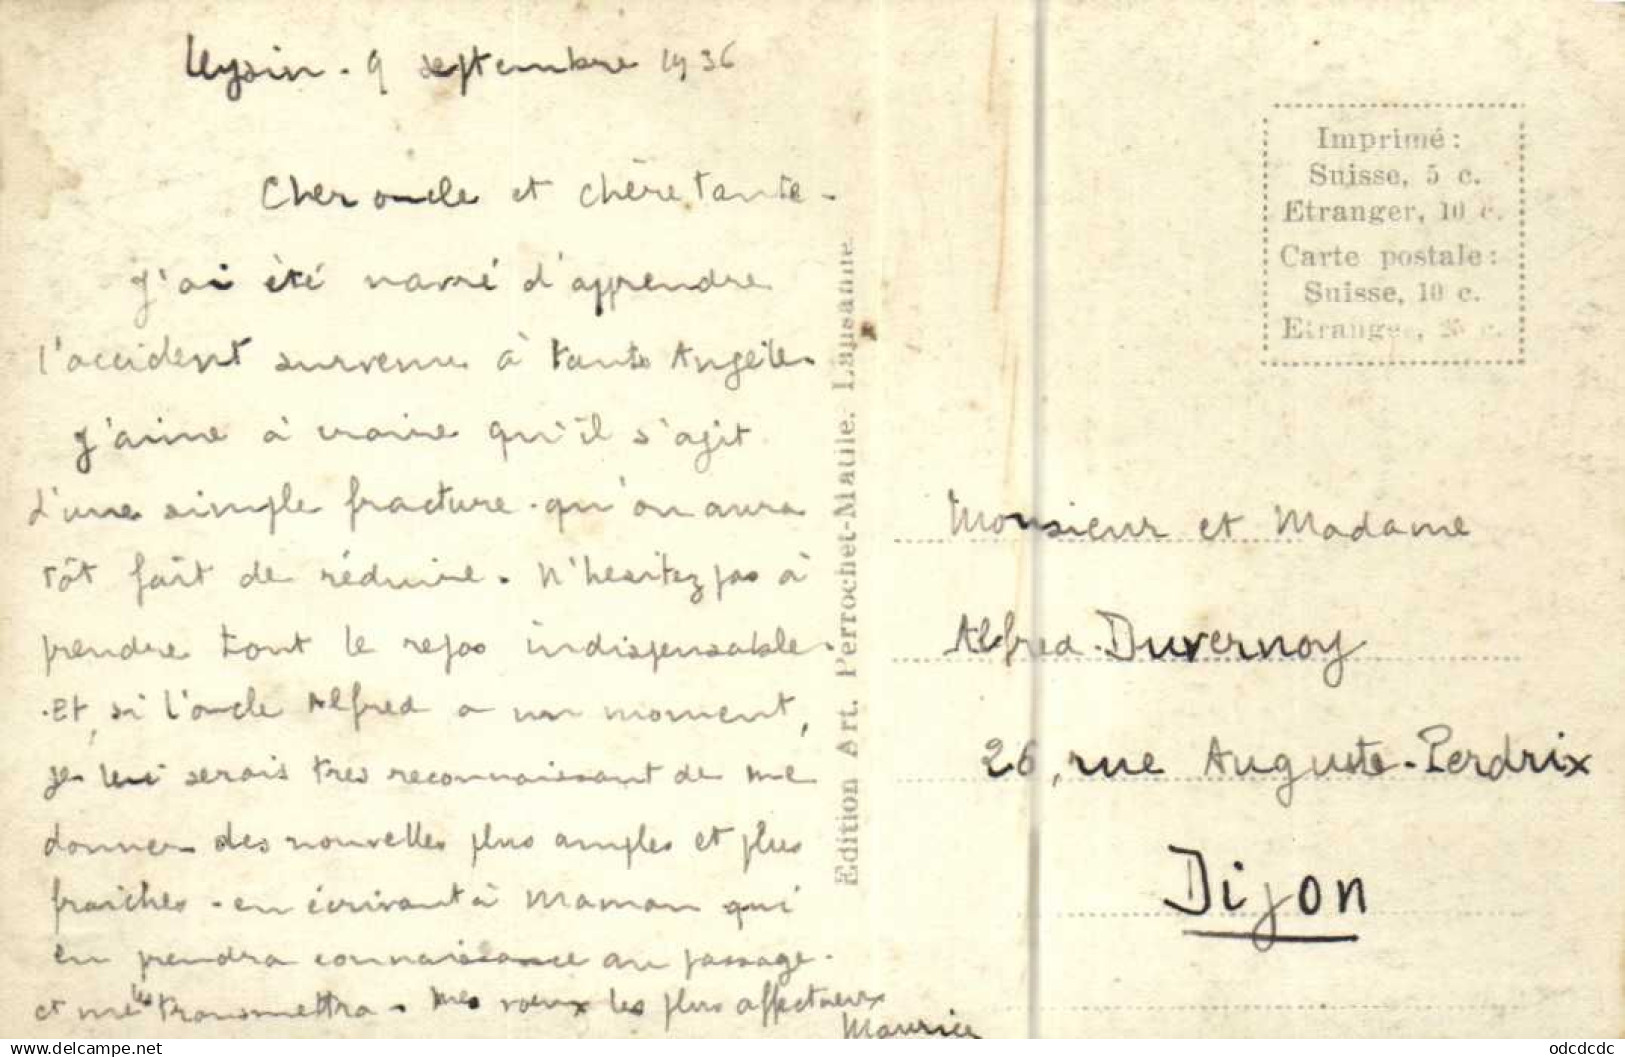 Leysin - 9 septembre 1936
Cher oncle et chère tante -
J'ai été navré d'apprendre
l'accident survenu à tante Angèle.
J'aime à croire qu'il s'agit
d'une simple fracture - qu'on aura
tôt fait de réduire. N'hesitez pas à
prendre tout le repos indispensable.
- Et, si l'oncle Alfred a un moment,
je lui serais très reconnaissant de me
donner des nouvelles plus amples et plus
fraîches - en écrivant à Maman qui
en prendra connaissance au passage -
et me les transmettra - Mes voeux les plus affectueux
Maurice
Edition Art. Perrochet-Matile. Lausanne.
Imprimé:
Suisse, 5 c.
Etranger, 10 c.
Carte postale:
Suisse, 10 c.
Etranger, 25 c.
Monsieur et Madame
Alfred Duvernoy
26, rue Auguste-Perdrix
Dijon
delcampe.net
odcdcdc